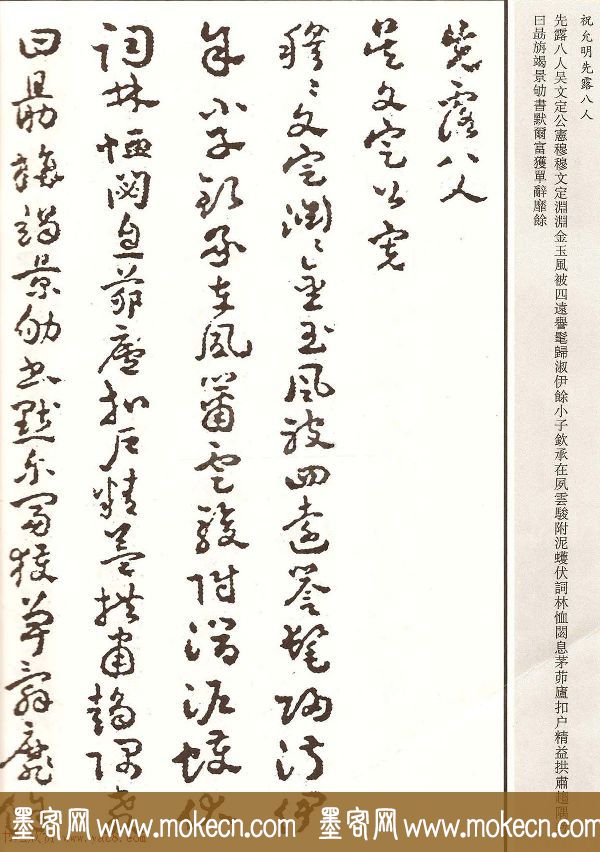 祝允明先露八人
先露八人吴文定公憲穆穆文定淵淵金玉風被四遠譽髦歸淑伊餘小子欽承在夙雲駿附泥蠖伏詞林恤閟息茅茆廬扣户精益拱肅趨隅
曰勗旃竭景劬書默爾富獲單辭靡餘
先露八人
吴文定公寬
穆穆文定淵淵金玉風被四遠譽髦歸淑伊
小子欽承在夙雲駿附泥蠖伏
詞林恤閟息茆廬扣户精益拱肅趨隅
曰勗旃竭景劬書默爾富獲單辭靡
墨客网 www.mokecn.com 墨客网 www.mokecn.com